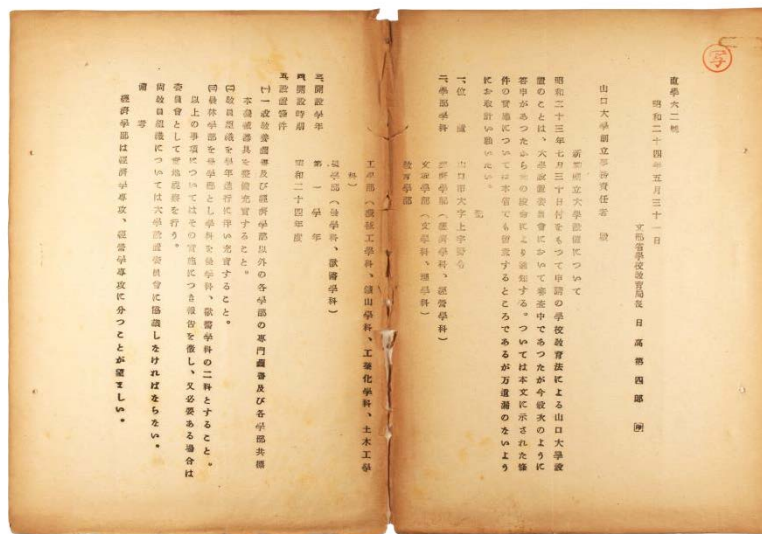 写
直學六二號
昭和二十四年五月三十一日
文部省學校教育局長 日高第四郎 印
山口大學創立事務責任者 殿
新制國立大學設置について
昭和二十三年七月三十日付をもつて申請の学校教育法による山口大學設
置のことは、大學設置委員会において審査中であつたが今般次のように
答申があつたから右の答申により通知する。ついては本文に示された條
件の實施については本省でも留意するところであるが万遺漏のないよう
にお取計い願いたい。
記
一、位置 山口市大字上宇野令
二、學部學科 經濟學部(經濟學科、經營學科)
文理學部(文學科、理學科)
教育學部
工學部(機械工學科、鑛山學科、工業化學科、土木工學
科)
農學部(農學科、獸醫學科)
三、開設學年 第一學年
四、開設時期 昭和二十四年度
五、設置條件
(一)一般教養圖書及び經濟學部以外の各學部の專門圖書及び各學部共標
本機械器具を整備充實すること。
(二)教員組織を學年進行に伴い充實すること。
(三)農林学部を農學部とし學科を農學科、獸醫學科の二科とすること。
以上の事項についてはその實施につき報告を徴し、又必要ある場合は
委員會として實地視察を行う。
尚教員組織については大學設置委員會に協議しなければならない。
備考
經濟學部は經濟學專攻、經營學專攻に分つことが望ましい。